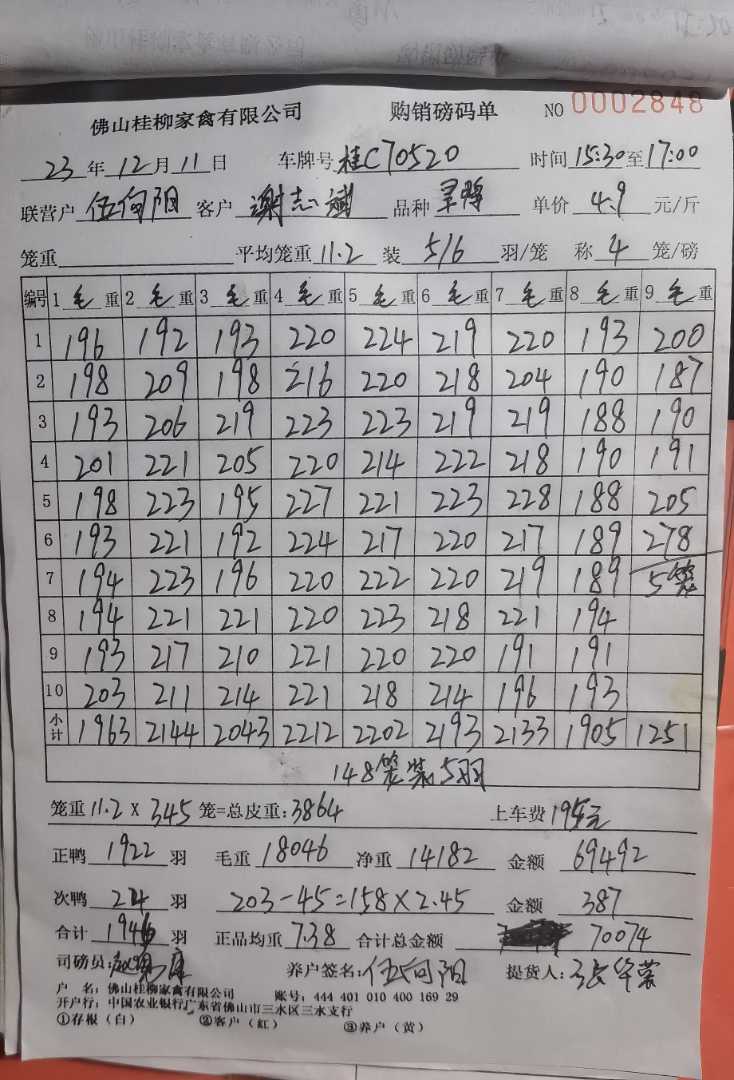 佛山桂柳家禽有限公司 购销磅码单 NO 0002848
23 年 12 月 11 日 车牌号 桂C70520 时间 15:30 至 17:00
联营户 伍向阳 客户 谢志斌 品种 单价 4.9 元/斤
笼重 平均笼重 11.2 装 5/6 羽/笼 称 4 笼/磅
编号 1 毛 重 2 毛 重 3 毛 重 4 毛 重 5 毛 重 6 毛 重 7 毛 重 8 毛 重 9 毛 重
1 196 192 193 220 224 219 220 193 200
2 198 209 198 216 220 218 204 190 187
3 193 206 219 223 223 219 219 188 190
4 201 221 205 220 214 222 218 190 191
5 198 223 195 227 221 223 228 188 205
6 193 221 192 224 217 220 217 189 278
7 194 223 196 220 222 220 219 189 5笼
8 194 221 221 220 223 218 221 194
9 193 217 210 221 220 220 191 191
10 203 211 214 221 218 214 196 193
小计 1963 2144 2043 2212 2202 2193 2133 1905 1251
148笼装5羽
笼重 11.2 X 345 笼=总皮重: 3864 上车费 195元
正鸭 1922 羽 毛重 18046 净重 14182 金额 69492
次鸭 24 羽 203-45=158×2.45 金额 387
合计 1946 羽 正品均重 7.38 合计总金额 70074
司磅员: 养户签名: 伍向阳 提货人:
户 名: 佛山桂柳家禽有限公司 账号: 444 401 010 400 169 29
开户行: 中国农业银行广东省佛山市三水区三水支行
①存根（白） ②客户（红） ③养户（黄）